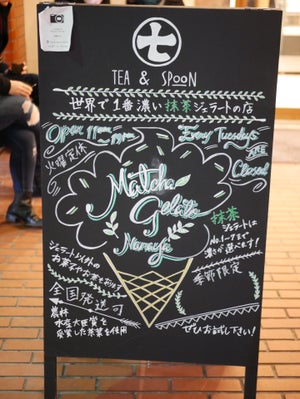 七
TEA & SPOON
世界で1番濃い抹茶ジェラートの店
Open 11am~
火曜定休
Every Tuesdays
are
Closed
Matcha
Gelato
Nanaya
抹茶
ジェラートは
No.1~7まで
濃さが選べます!
ジェラート以外の
季節限定
全国発送可
農林
水産大臣賞を
受賞した茶葉を使用
ぜひお試し下さい!